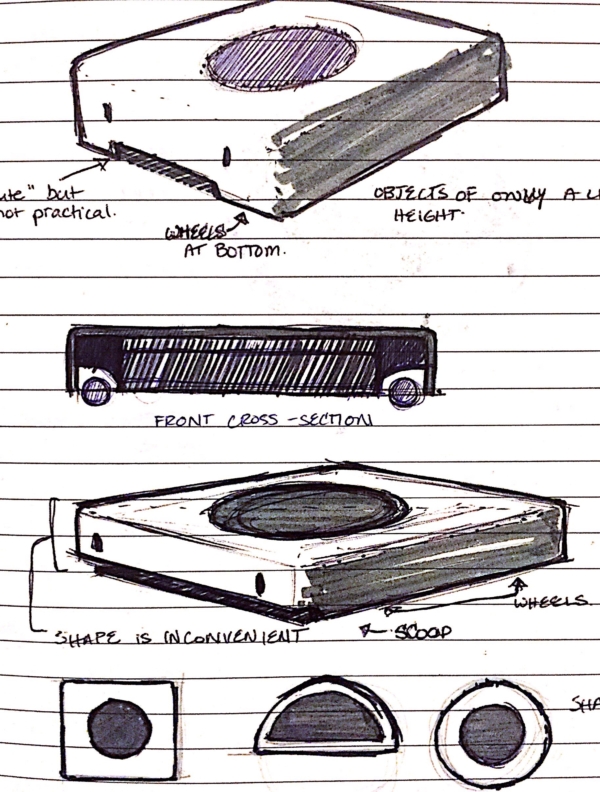 but
not practical.
WHEELS
AT BOTTOM.
OBJECTS OF ONLY A
HEIGHT.
FRONT CROSS-SECTION
WHEELS.
SHAPE IS INCONVENIENT
SCOOP